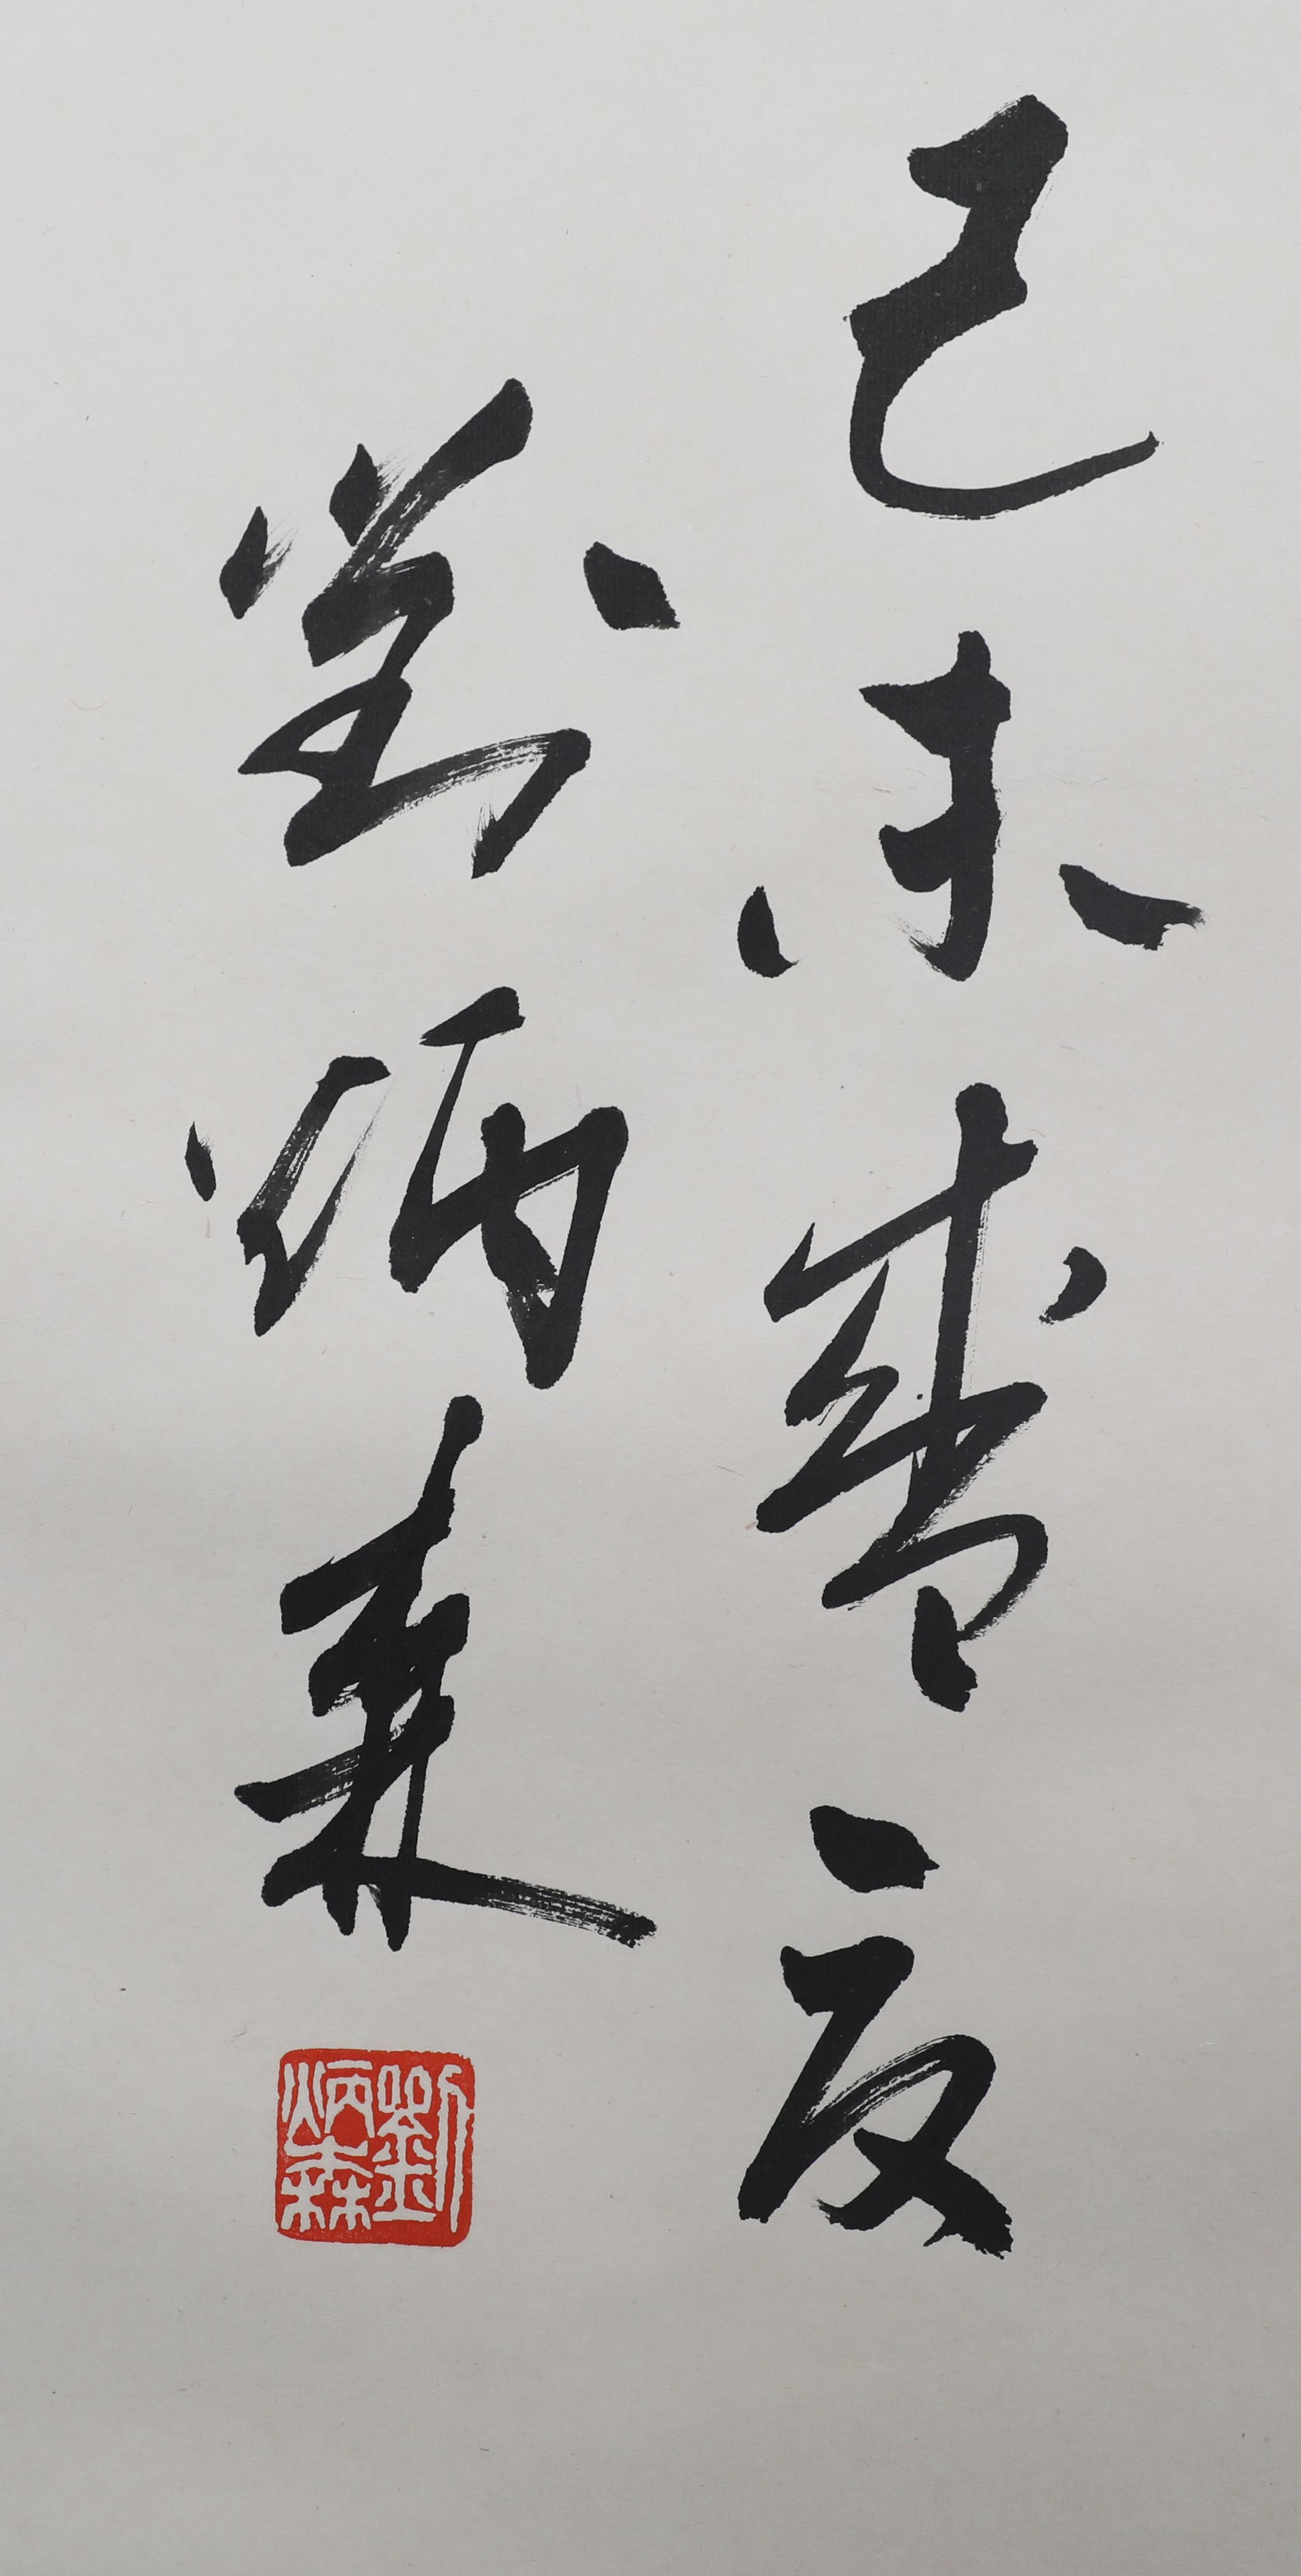 己未盛夏
劉炳森
劉炳森